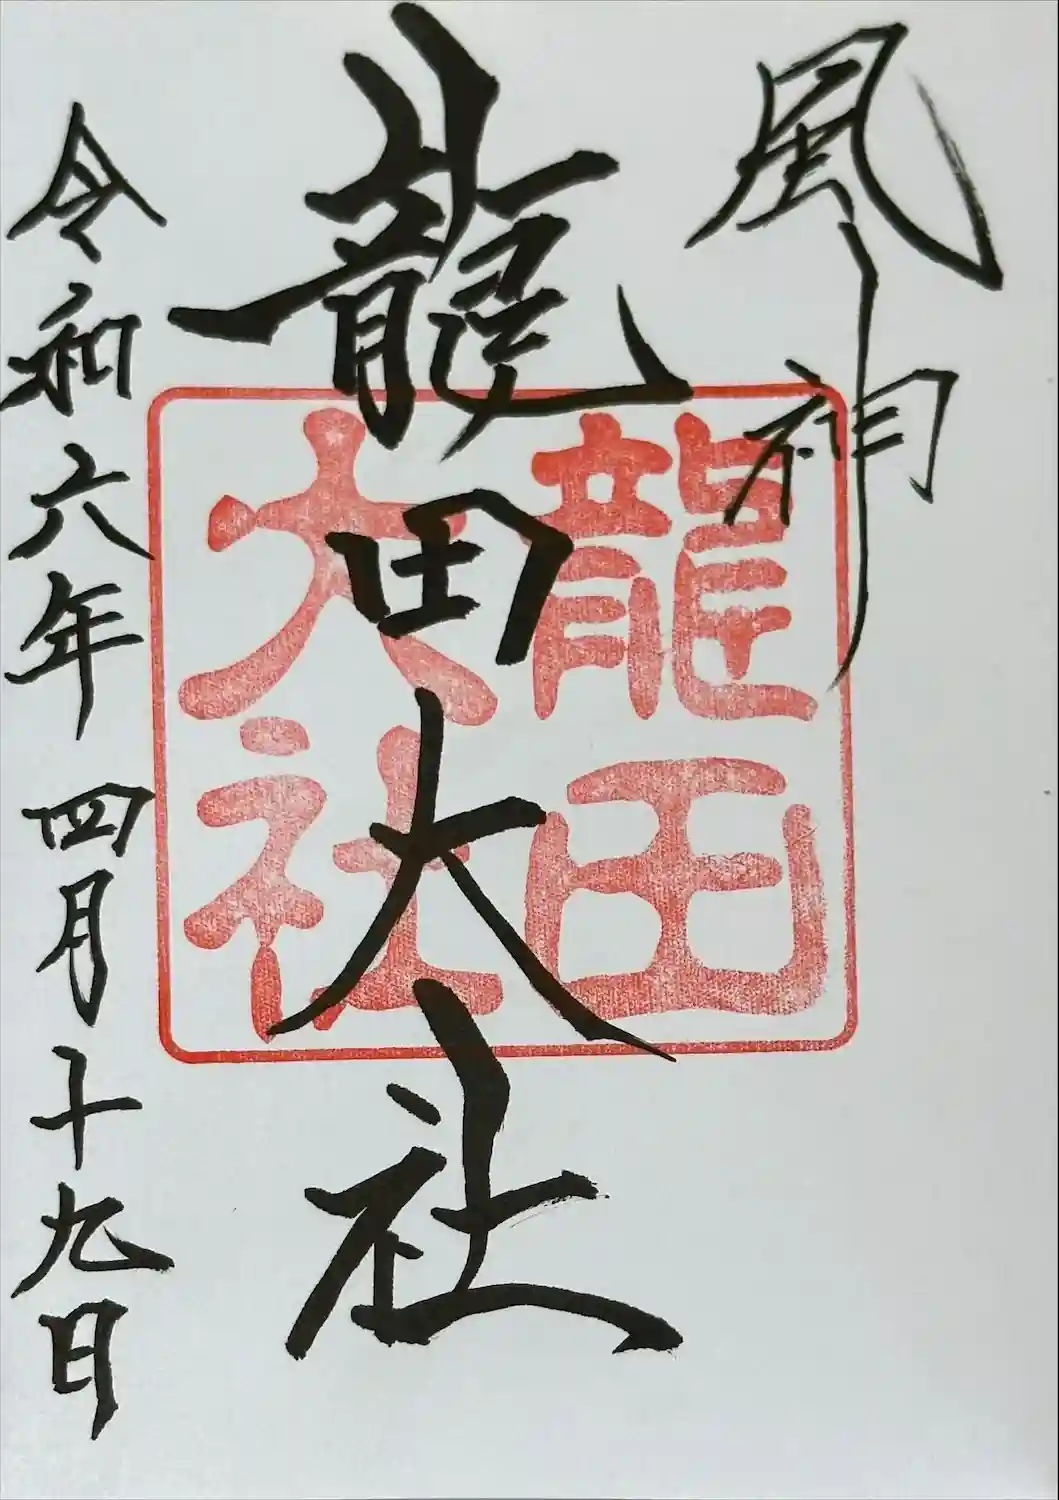 風神
龍田大社
龍田
大社
令和六年四月十九日